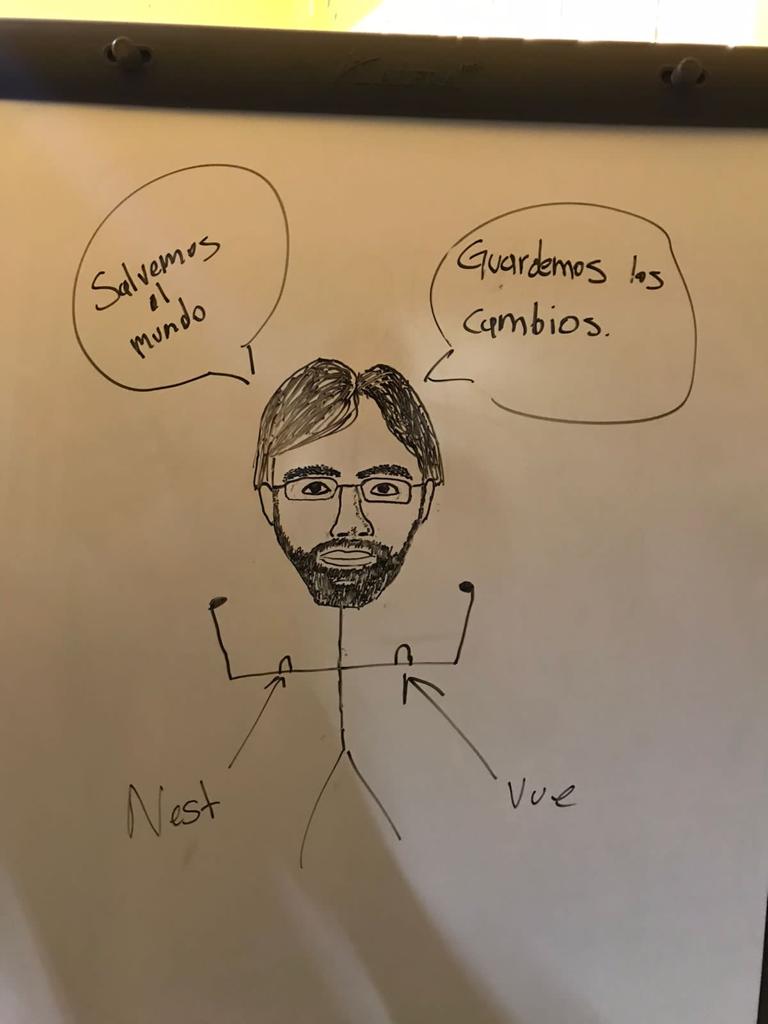 Salvemos
el
mundo
Guardemos los
cambios.
Nest
Vue